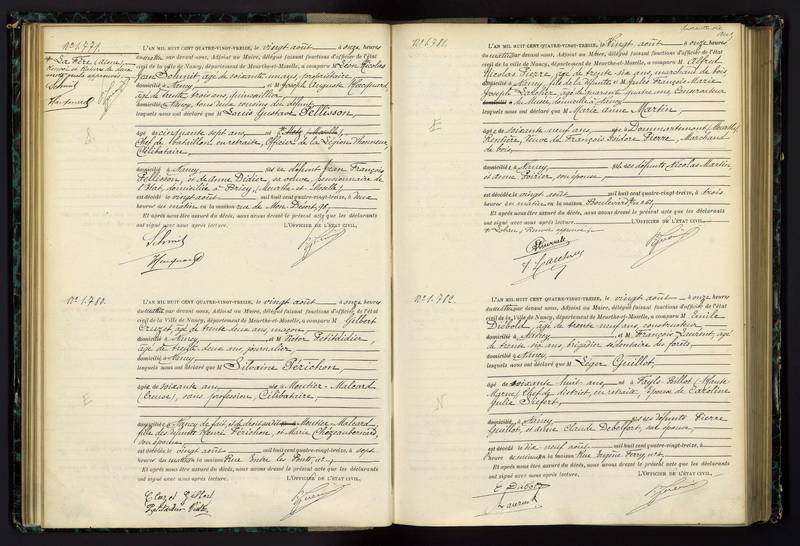 N° 1.779.
L'AN MIL HUIT CENT QUATRE-VINGT-TREIZE, le vingt août à onze heures
du matin par devant nous, Adjoint au Maire, délégué faisant fonctions d'officier de l'état
civil de la ville de Nancy, département de Meurthe-et-Moselle, a comparu M Léon Nicolas
Jean Schmit, âgé de soixante, propriétaire
domicilié à Nancy et M Joseph Auguste Hacquard,
âgé de trente trois ans,
domicilié à Nancy, tous deux cousins du défunt
lesquels nous ont déclaré que M Louis Gustave Pellisson,
âgé de cinquante sept ans, né
Chef de bataillon en retraite, Officier de la Légion d'honneur,
Célibataire,
domicilié à Nancy défunt Jean François
Pellisson, et de Anne Didier, sa veuve, pensionnaire de
l'Etat, domiciliée à Briey (Meurthe-et-Moselle)
est décédé le vingt août mil huit cent quatre-vingt-treize, à
heures du matin en la maison rue de Mon Désert, 98,
Et après nous être assuré du décès, nous avons dressé le présent acte que les déclarants
ont signé avec nous après lecture. L'OFFICIER DE L'ÉTAT CIVIL,
+ La Fère (Aisne)
Schmit
Hacquard
Schmit
Hacquard
N° 1.780.
L'AN MIL HUIT CENT QUATRE-VINGT-TREIZE, le vingt août à onze heures
du matin par devant nous, Adjoint au Maire, délégué faisant fonctions d'officier de l'état
civil de la Ville de Nancy, département de Meurthe-et-Moselle, a comparu M Gilbert
âgé de trente deux ans, maçon
domicilié à Nancy et M Victor Petitdidier,
âgé de trente deux ans, journalier,
domicilié à Nancy
lesquels nous ont déclaré que M Silvaine Périchon,
âgée de soixante ans née à Moutier-Malcard
(Creuse), sans profession, Célibataire,
domiciliée à Nancy de fait, et de droit à Moutier-Malcard
fille des défunts Henri Périchon, et Marie
son épouse
est décédée le vingt août mil huit cent quatre-vingt-treize, à sept
heures du matin en la maison Rue
Et après nous être assuré du décès, nous avons dressé le présent acte que les déclarants
ont signé avec nous après lecture. L'OFFICIER DE L'ÉTAT CIVIL,
E
N° 1.781.
L'AN MIL HUIT CENT QUATRE-VINGT-TREIZE, le Vingt août à onze heures
du matin par devant nous, Adjoint au Maire, délégué faisant fonctions d'officier de l'état
civil de la ville de Nancy, département de Meurthe-et-Moselle, a comparu M Alfred
Nicolas Pierre, âgé de trente six ans, marchand de bois
domicilié à Nancy, fils de la défunte et M Jules François Marie
Joseph âgé de quarante quatre ans, Conservateur
du Musée, domicilié à Nancy
lesquels nous ont déclaré que M Marie Anne Martin,
âgée de soixante neuf ans, née à Dommartemont (Meurthe)
Rentière, veuve de François Isidore Pierre, Marchand
de bois,
domiciliée à Nancy fille des défunts Nicolas Martin,
et Anne Poirier, son épouse,
est décédée le vingt août mil huit cent quatre-vingt-treize, à trois
heures du matin en la maison Boulevard
Et après nous être assuré du décès, nous avons dressé le présent acte que les déclarants
ont signé avec nous après lecture. L'OFFICIER DE L'ÉTAT CIVIL,
E
N° 1.782.
L'AN MIL HUIT CENT QUATRE-VINGT-TREIZE, le vingt août à onze heures
du matin par devant nous, Adjoint au Maire, délégué faisant fonctions d'officier de l'état
civil de la Ville de Nancy, département de Meurthe-et-Moselle, a comparu M Emile
Diebold, âgé de trente neuf ans, constructeur
domicilié à Nancy, et M François Laurent, âgé
de trente six ans, brigadier sédentaire des forêts,
domicilié à Nancy,
lesquels nous ont déclaré que M Léger Guillot,
âgé de soixante huit ans, né à Fayls-Billot (Haute
Marne) Chef de district, en retraite, époux de Caroline
Julie
domicilié à Nancy fils des défunts Pierre
Guillot, et de Claude Debelfort, son épouse,
est décédé le dix neuf août mil huit cent quatre-vingt-treize, à
heures en la maison Rue Eugène Ferry,
Et après nous être assuré du décès, nous avons dressé le présent acte que les déclarants
ont signé avec nous après lecture. L'OFFICIER DE L'ÉTAT CIVIL,
N
Laurent